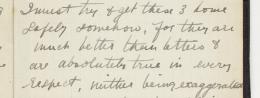 I must try & get these 3 home
safely somehow, for they are
much better than letters &
are absolutely true in every
respect, neither being exaggerated